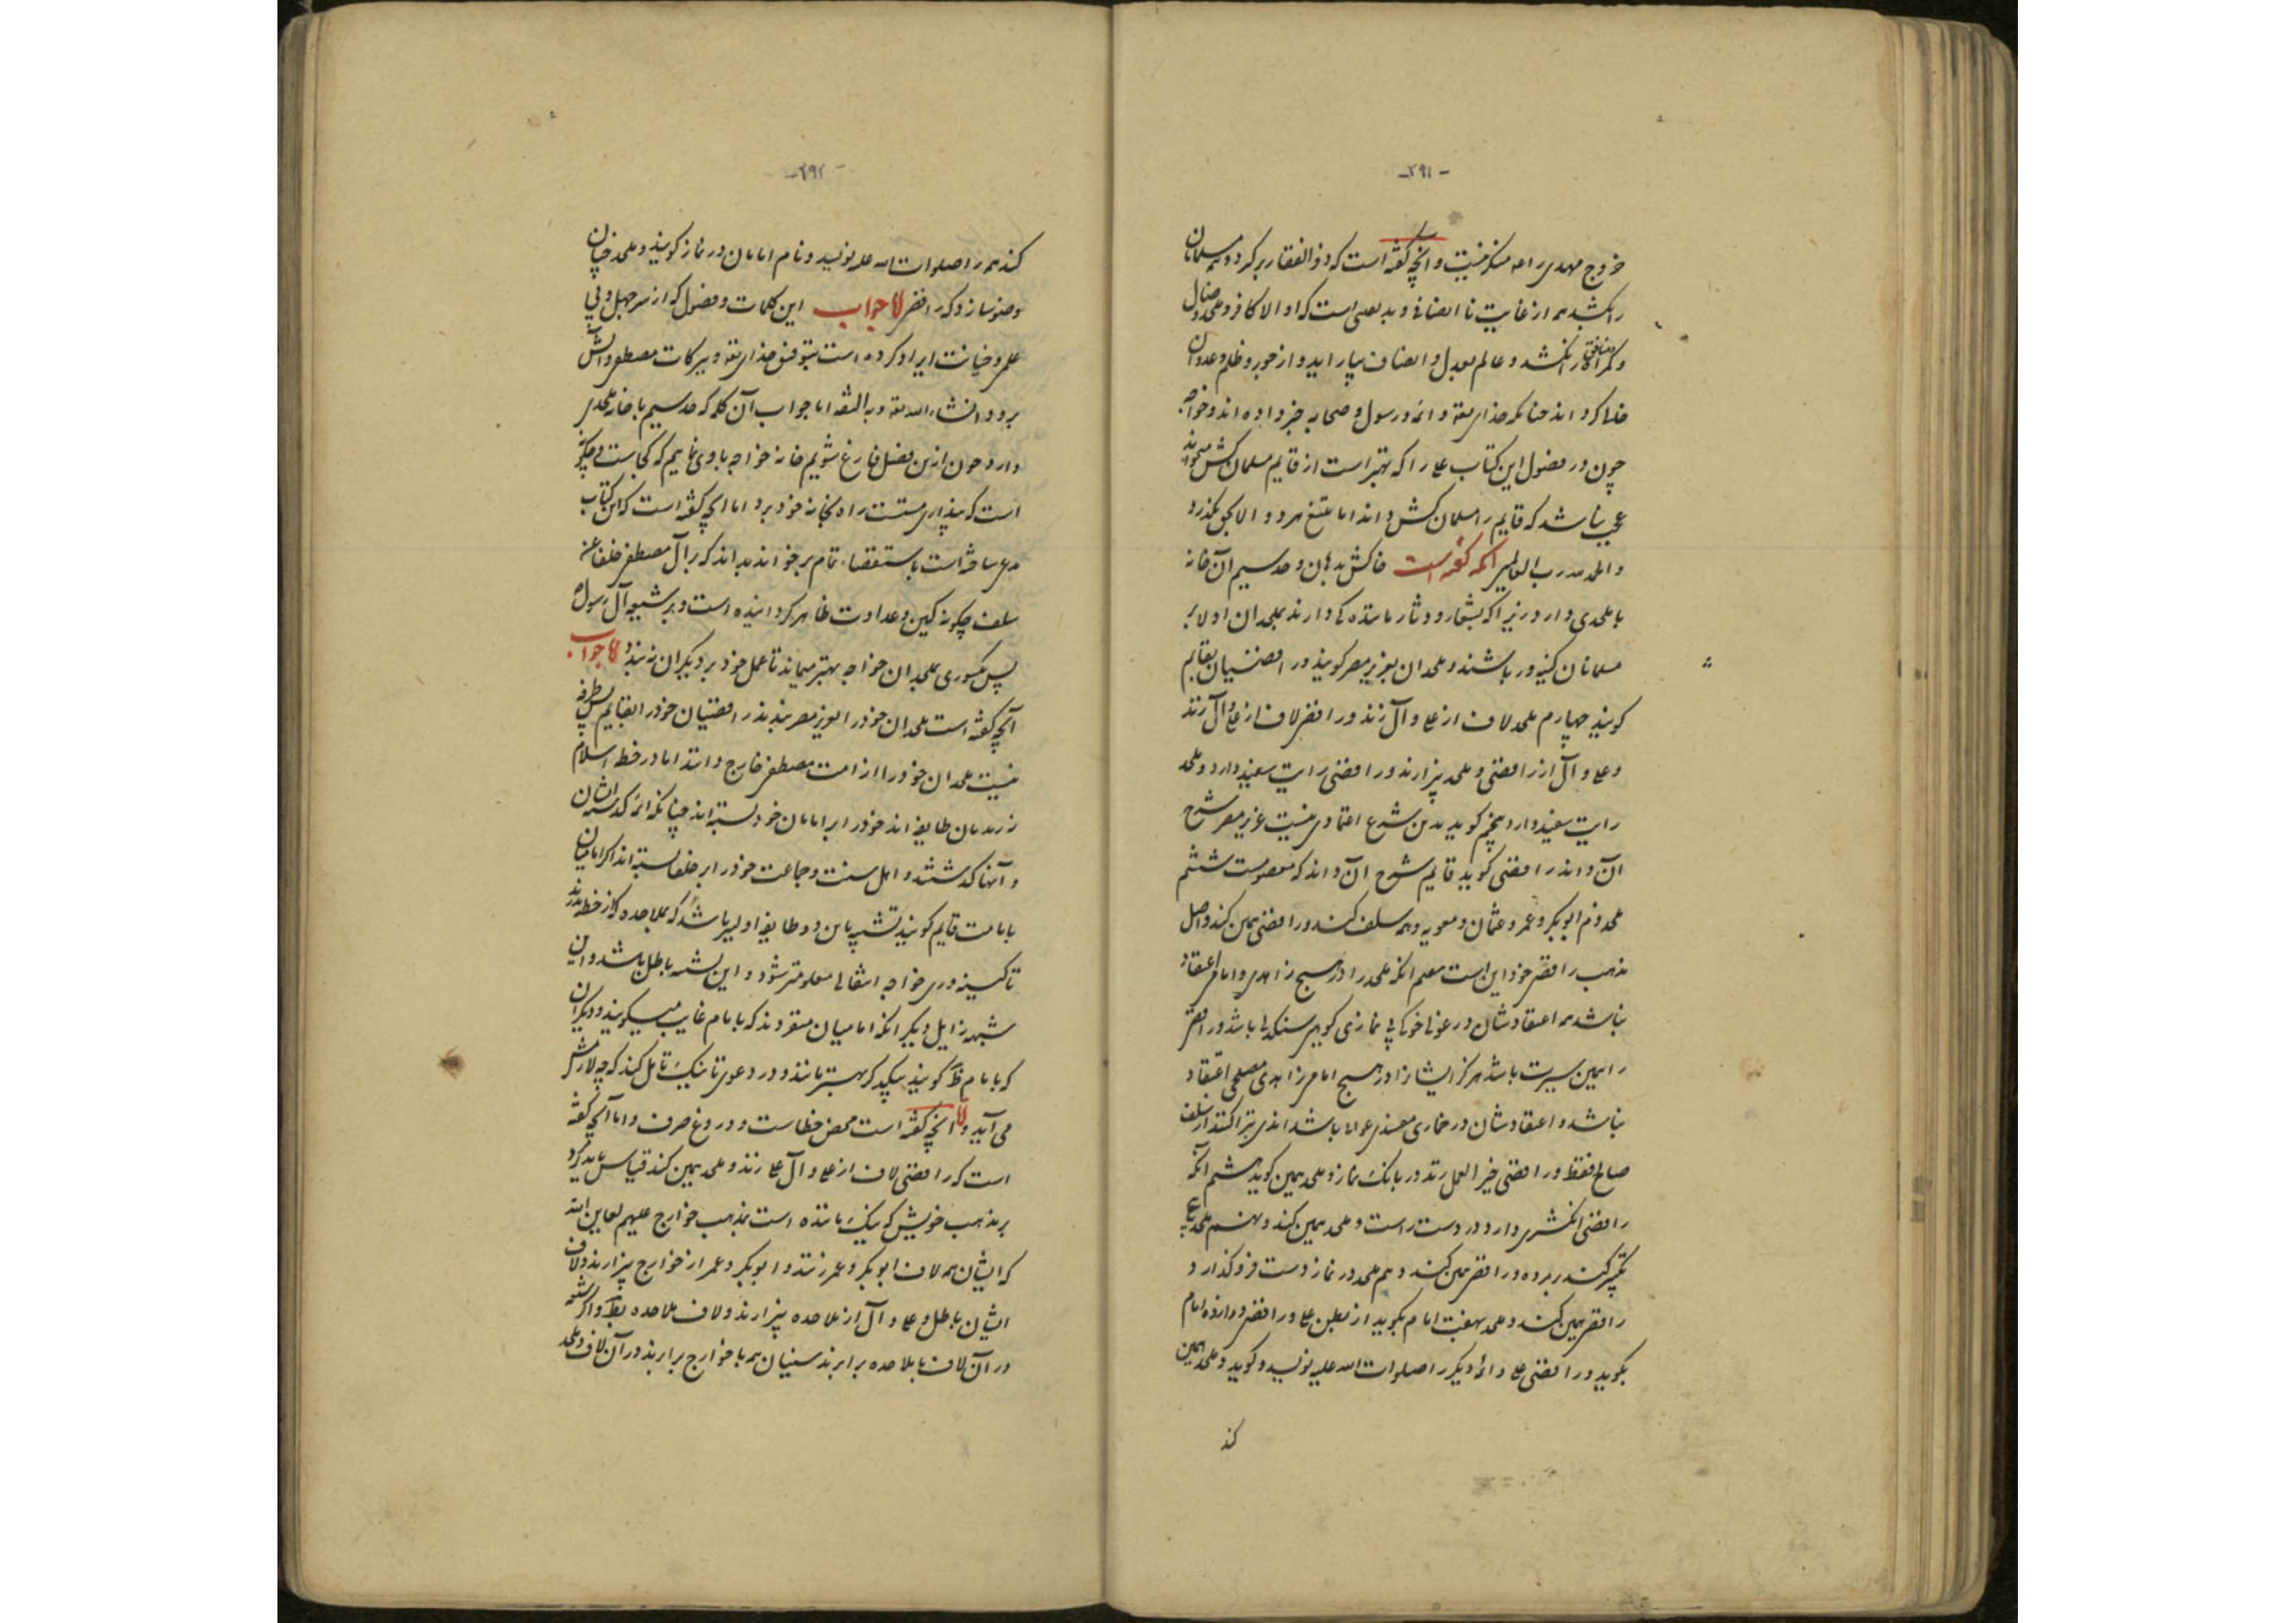 -۲۹۱-
خروج مهدی را منکر نیست و آنچه گفته است که ذوالفقار برگیرد و همه مسلمانان
را بکشد هم از غایت نا انصافی و بد است که او الا کافر و ملحد و ضال
و گمراه و منافق را نکشد و عالم بعدل و انصاف بیاراید و از جور و ظلم و عدوان
خالی کرداند چنانکه خدای تعالی و ائمه و رسول و صحابه خبر داده اند و خواجه
چون در فصول این کتاب علی را که بهتر است از قایم مسلمان کش میخواند
عجب نباشد که قایم را مسلمان کش داند اما بتیغ و الا بحق نگذرد
والحمد لله رب العالمین آنکه گفته است خاکش بدهان و سیم آن خانه
با ملحدی دارد زیرا که بشعار و دثار ماننده کی دارند بملحدان اولا بر
مسلمانان کینه ور باشند و ملحدان بعزیز مصر گویند و رافضیان بقایم
گویند چهارم ملحد لاف از علی و آل زند و رافضی لاف از علی و آل زند
و علی و آل از رافضی و ملحد بیزارند و رافضی رایت سفید دارد و ملحد
رایت سفید دارد پنجم گوید بدین شرع اعتمادی نیست عزیز مصر شرح
آن داند رافضی گوید قایم شرح آن داند که معصومست ششم
ملحد ذم ابوبکر و عمر و عثمان و معویه و همه سلف کند و رافضی همین کند و اصل
مذهب رافضی خود این است هفتم آنکه ملحد را در هیچ زاهدی و امام اعتقاد
نباشد همه اعتقادشان در عوانی خوکی بی نمازی سنگدلی باشد و رافضی
را همین سیرت باشد هرگز ایشان را در هیچ امام زاهدی مصلحی اعتقاد
نباشد و اعتقادشان در خماری مفسدی عوانی باشد تبرا کند از سلف
صالح فقط و رافضی خیر العمل زند در بانک نماز و ملحد همین گوید هشتم آنکه
رافضی انکشتری دارد در دست راست و ملحد همین کند و نهم ملحد پنج
تکبیر کند بر مرده و رافضی همین کند دهم ملحد در نماز دست فروگذارد و
رافضی همین کند و ملحد بهفت امام بگوید از بطن علی و رافضی دوازده امام
بگوید و رافضی علی و ائمه دیگر را صلوات الله علیه نویسد و گوید و ملحد همین
کند
-۲۹۲-
کند همه را صلوات الله علیه نویسد و نام امامان در نماز گویند و ملحد چنان
وضو سازد که رافضی اما جواب این کلمات و فصول که از سر جهل و بی
علمی و خیانت ایراد کرده است بتوفیق خدای تعالی و ببرکات مصطفی و آلش
برود انشاء الله تعالی و به الثقه اما جواب آن کلمه که سیم با خانه ملحدی
دارد چون ازین فصل فارغ شویم خانه خواجه باوی نماییم که کجاست و چگونه
است که نپذیرفتست راه بخانه خود برد اما آنچه گفته است که این کتاب
ساخته است باستقصاء تمام برخواند بداند که بر آل مصطفی خلفا عن
سلف چگونه کین و عداوت ظاهر کردانیده است و بر شیعه آل رسول
پس کینوری بملحدان خواجه بهتر میماند تا عمل خود بر دیگران نبندد اما جواب
آنچه گفته است ملحدان خود را بعزیز مصر بندند رافضیان خود را بقایم بس طرفه
نیست ملحدان خود را از امت مصطفی خارج دانند اما در خطه اسلام
طایفه اند خود را بر امامان خود بسته اند چنانکه ائمه گذشته ایشان
و آنها گذشتند و اهل سنت و جماعت خود را بر خلفا بسته اند اگر امامیان
بامامت قایم گویند تشبیه باین دو طایفه اولیتر باشد که بملاحده که از خطه بدرند
تا کینه وری خواجه انتقالی معلومتر شود و این شبهه باطل باشد و این
شبهه زایل دیگر آنکه امامیان متفردند که بامام غایب میگویند و دیگران
که بامام ظاهر گویند بیکدیگر بهتر مانند و در دعوی تا نیک تامل کند که چه لازمش
می آید و اما آنچه گفته است محض خطاست و دروغ صرف و اما آنچه گفته
است که رافضی لاف از علی و آل علی زند و ملحد همین کند قیاس باید کرد
بر مذهب خویش که نیک ماننده است بمذهب خوارج علیهم لعاین الله
که ایشان هم لاف ابوبکر و عمر زنند و ابوبکر و عمر از خوارج بیزارند و لاف
ایشان باطل و علی و آل از ملاحده بیزارند و لاف ملاحده و اگر شیعه
در آن لاف با ملاحده برابرند سنیان هم با خوارج برابرند در آن لاف و ملحد